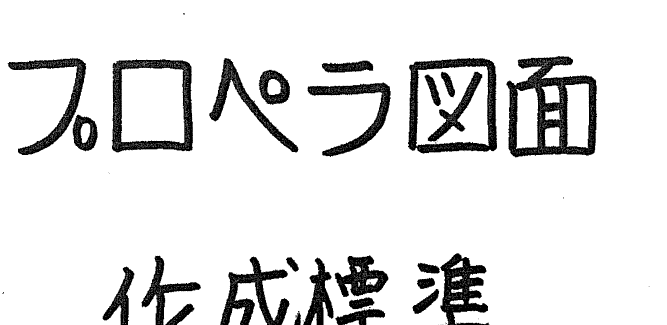 プロペラ図面
作成標準